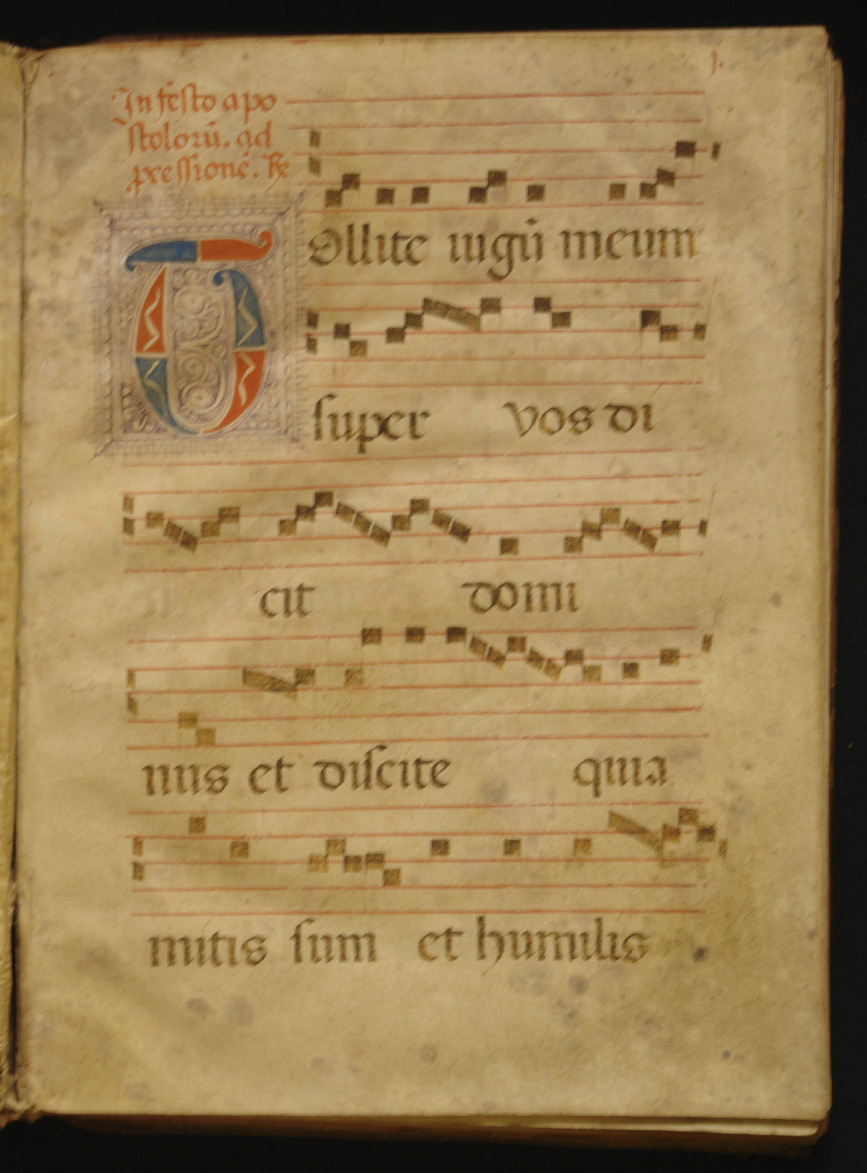 j.
In festo apo
stolorū. ad
p̄cessionē. ℟
Tollite iugū meum
super vos di
cit domi
nus et discite quia
mitis sum et humilis